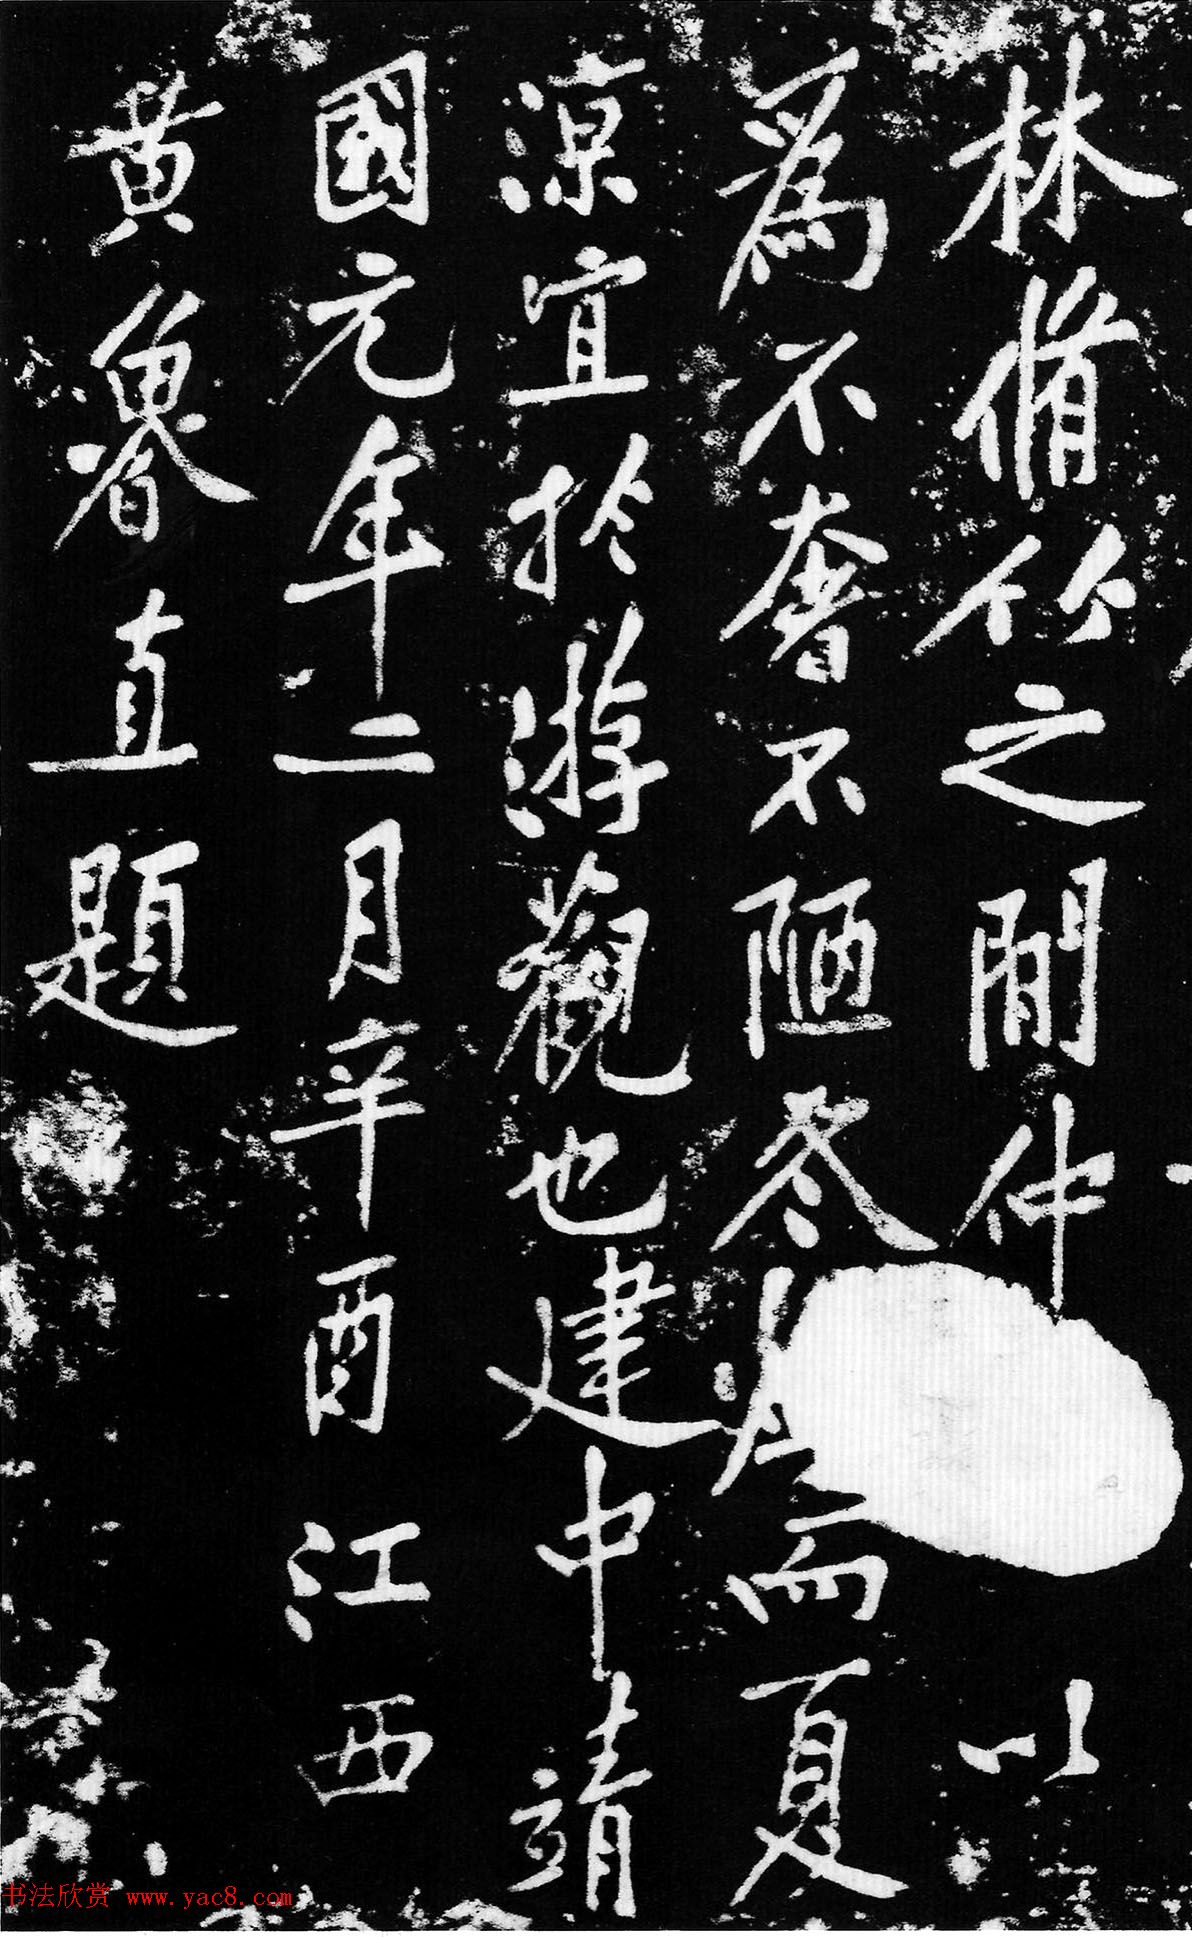 林脩竹之間仲以
為不奢不陋冬而夏
涼宜於游觀也建中靖
國元年二月辛酉江西
黃魯直題
书法欣赏 www.yac8.com